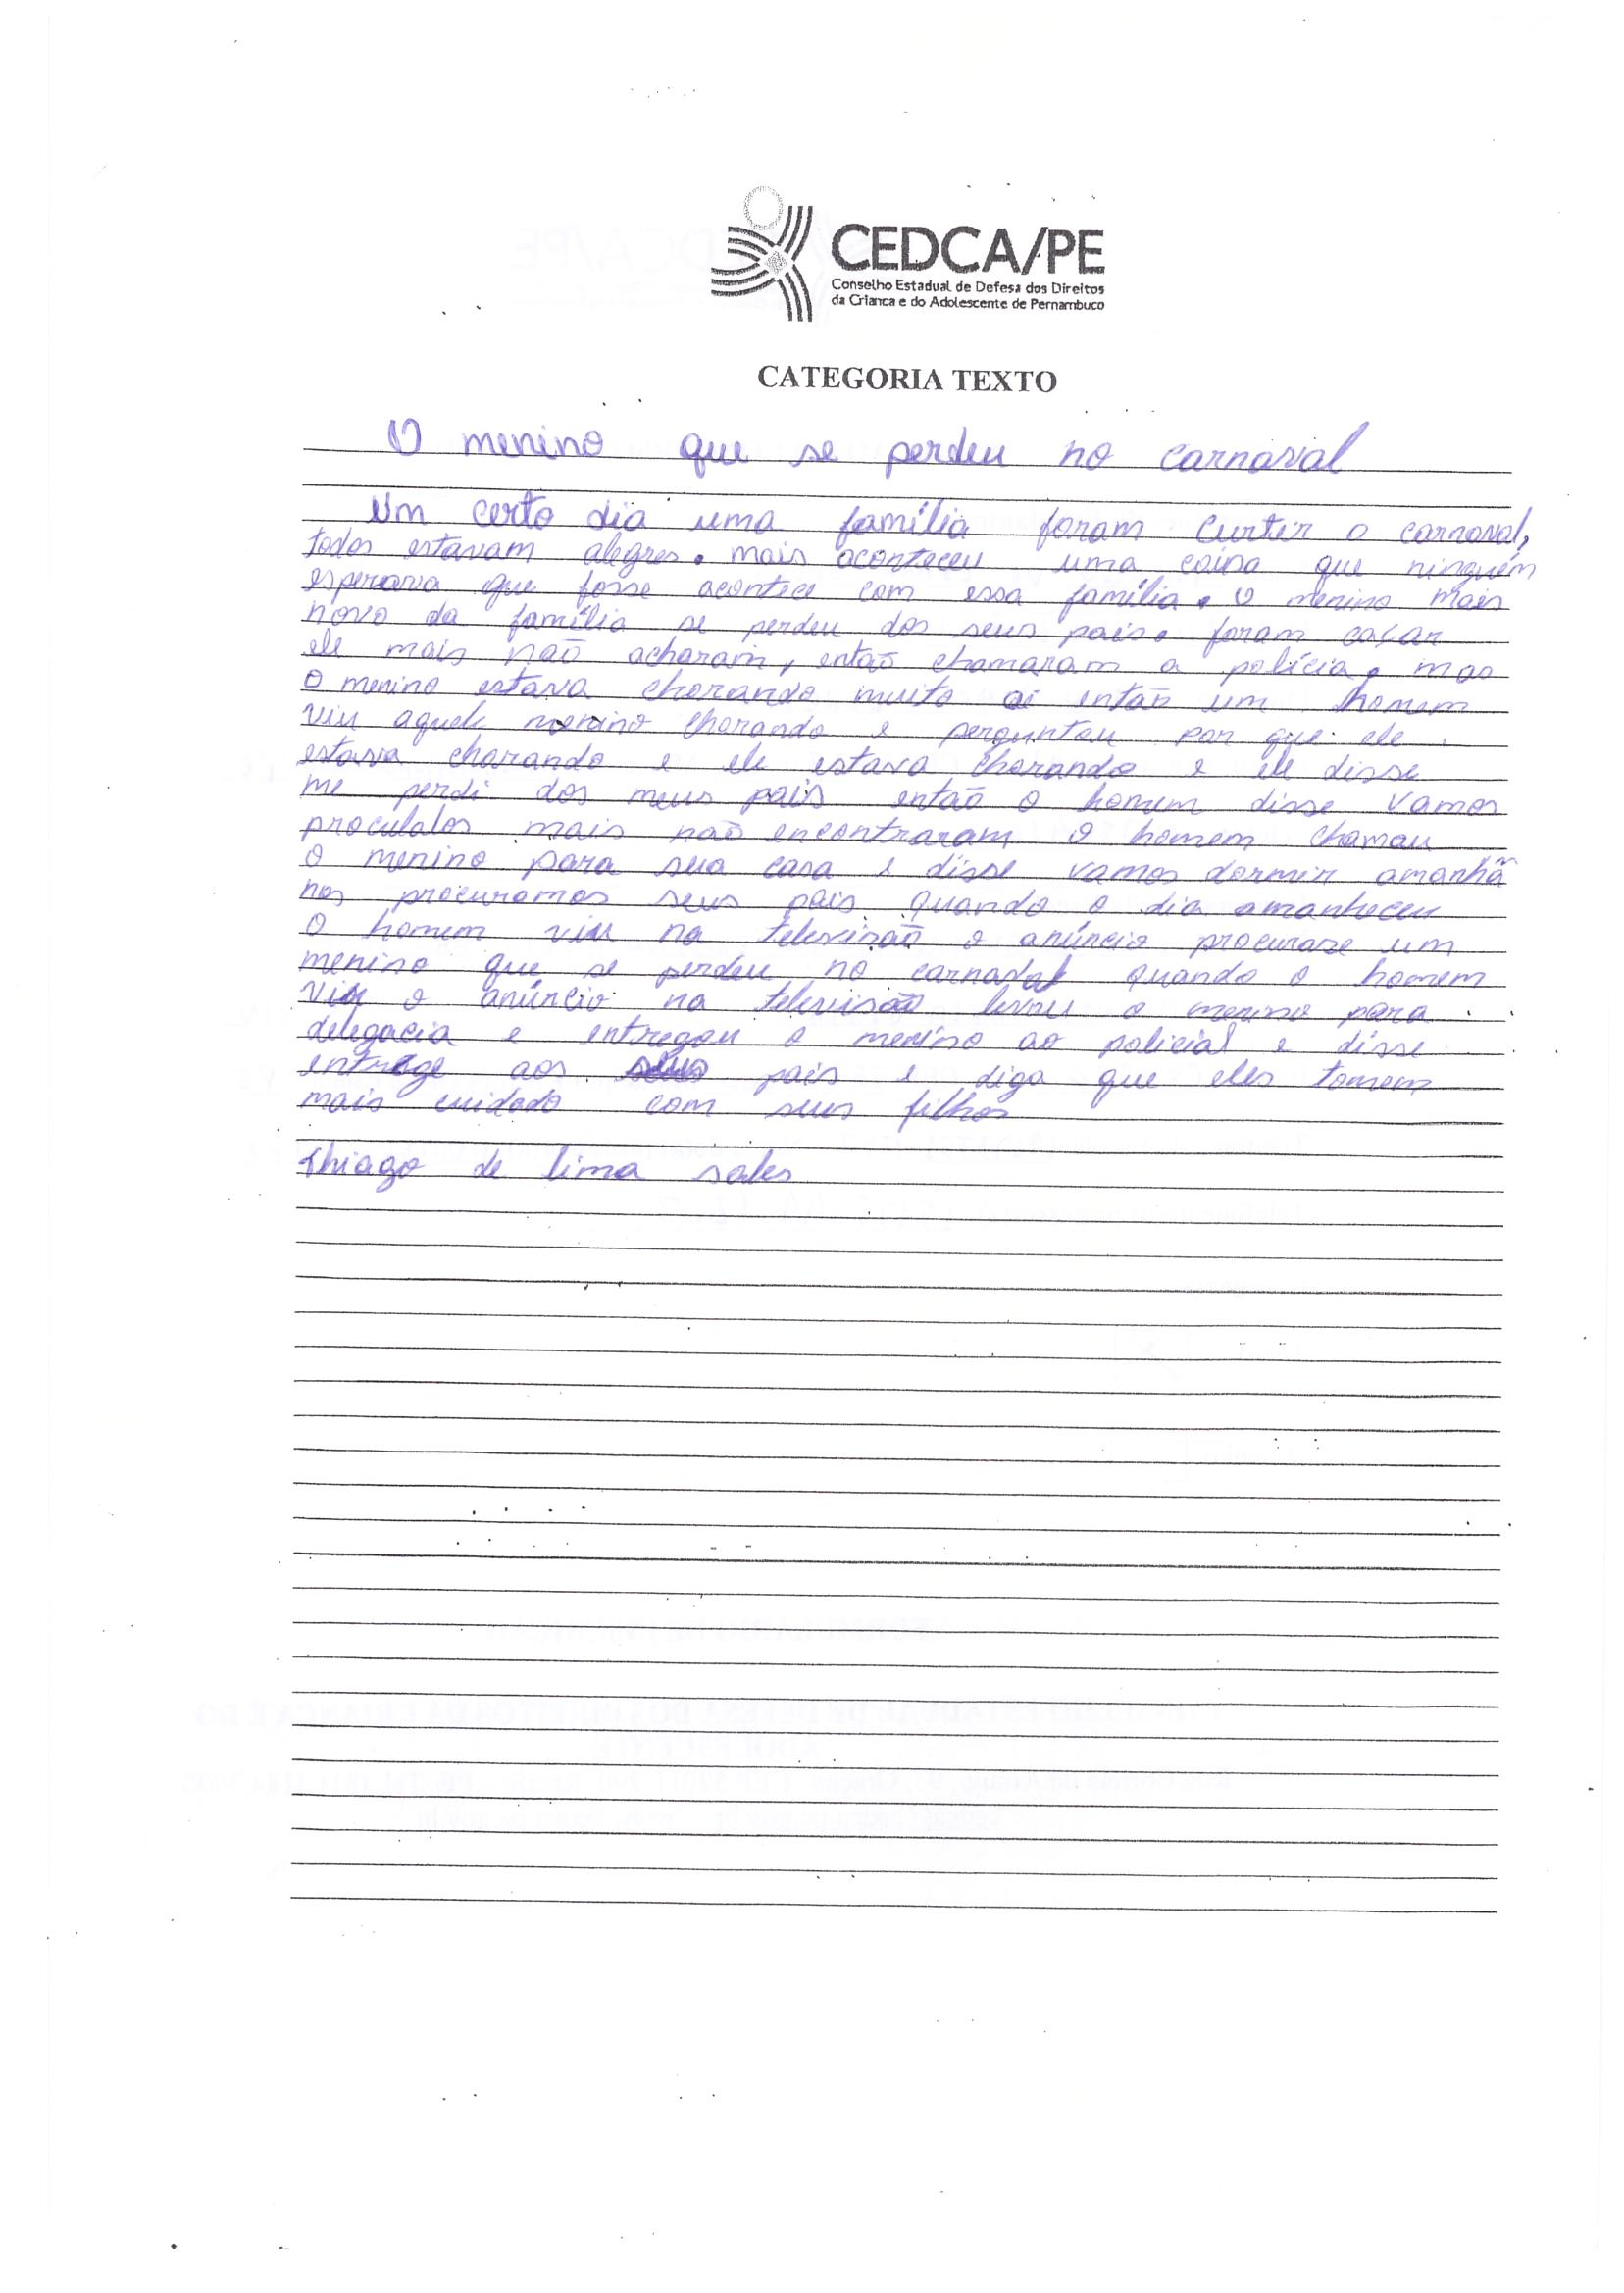 CEDCA/PE
Conselho Estadual de Defesa dos Direitos
da Criança e do Adolescente de Pernambuco
CATEGORIA TEXTO
O menino que se perdeu no carnaval
Um certo dia uma família foram curtir o carnaval,
todos estavam alegres. mais aconteceu uma coisa que ninguém
esperava que fosse acontece com essa família. O menino mais
novo da família se perdeu dos seus pais. foram caçar
ele mais não acharam, então chamaram a polícia, mas
o menino estava chorando muito ai então um homem
viu aquele menino chorando e perguntou por que ele
estava chorando e ele estava chorando e ele disse
me perdi dos meus pais então o homem disse vamos
proculalos mais não encontraram o homem chamou
o menino para sua casa e disse vamos dormir amanhã
nos procuramos seus pais quando o dia amanheceu
o homem viu na televisão o anúncio procurase um
menino que se perdeu no carnaval quando o homem
viu o anúncio na televisão levou o menino para
delegacia e entregou o menino ao policial e disse
entrege aos seus pais e diga que eles tomem
mais cuidado com seus filhos
Thiago de lima sales